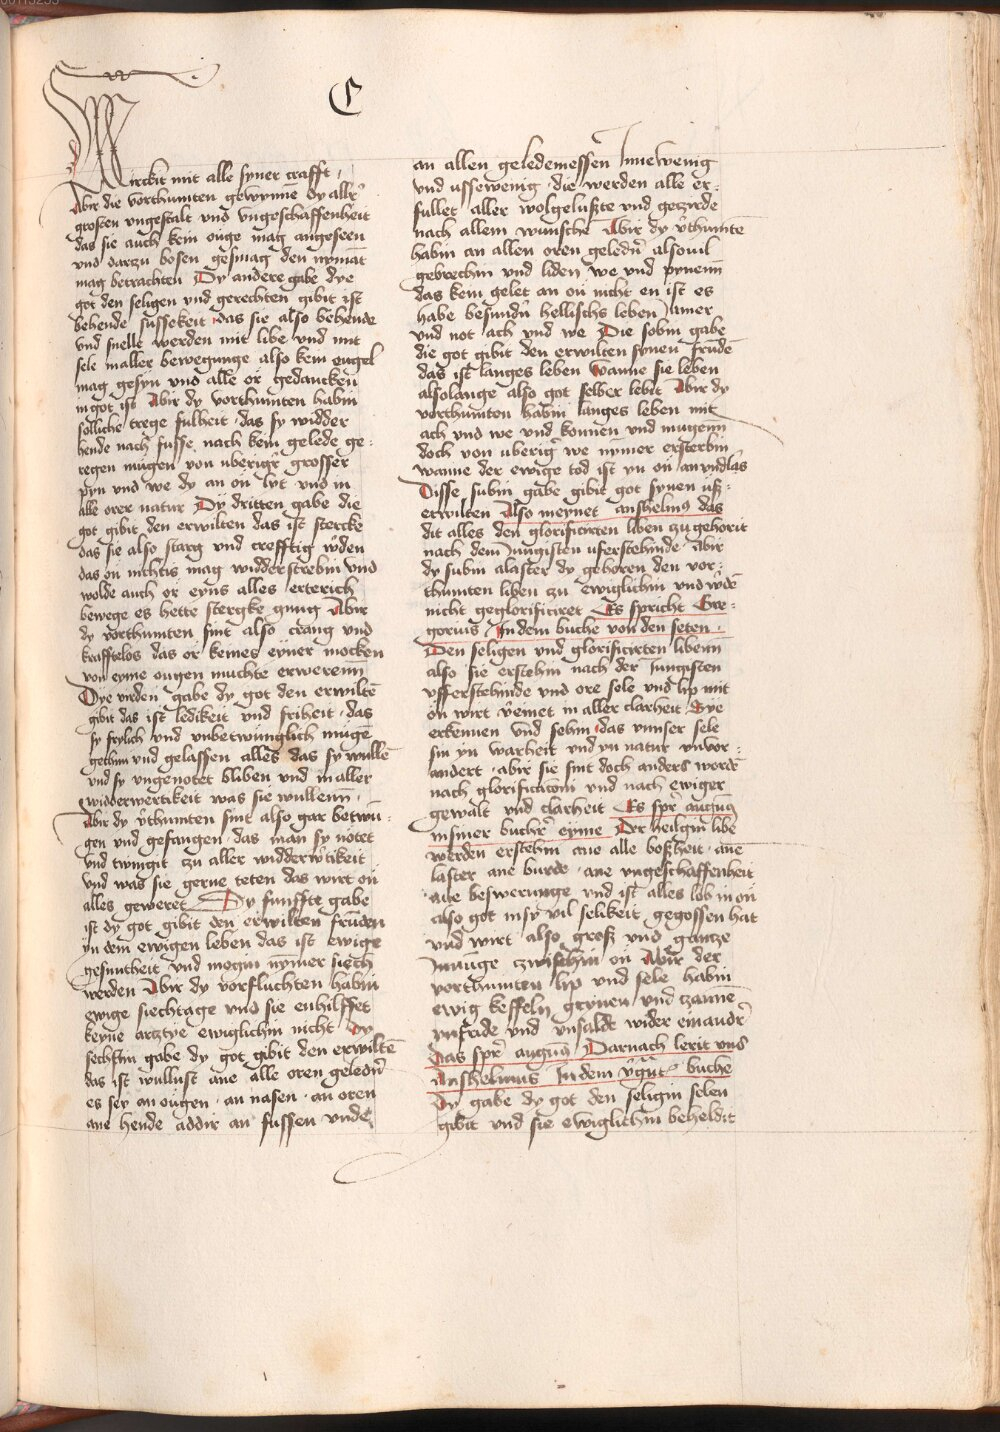 C
Wirckit mit alle syner crafft /
Abir die vorthumten gewynne dy allr̕
grosten vngestalt vnd vngeschaffenheit
das sie auch kein ouge mag angeseen
vnd darzu bosen gesmag den nymāt
mag betrachten Dy andere gabe dye
got den seligen vnd gerechten gibit ist
behende sussekeit das sie also behende
vnd snelle werden mit libe vnd mit
sele in aller bewegunge also kem ougel
mag gesyn vnd alle or gedancken
in got ist Abir dy vorthumten habin
solliche trege fulheit das sy widder
hende nach fusse nach kem gelede ge=
regen mugen von vberigr̕ grosser
pyn vnd we dy an on lyt vnd in
alle orer natur Dy dritten gabe die
got gibit den erwilten das ist stercke
das sie also starg vnd crefftig w̕den
das on nichtis mag widderstrebin Vnd
wolde auch or eyns alles erterich
bewege es hette stergke gnug Abir
dy vorthumten sint also crang vnd
krafftelos das or keines eyner mocken
von eyme ougen muchte erwerenn
Dye virden gabe dy got den erwiltē
gibit das ist ledikeit vnd friheit das
sy frylich vnd vnbetwunglich mugē
gethun vnd gelassen alles das sy wullē
vnd sy vngenotet bliben vnd in aller
widderwertikeit was sie wullenn
Abir dy v̕thumten sint also gar betwū=
gen vnd gefangen das man sy notet
vnd twingit zu aller widderw̕tikeit
vnd was sie gerne teten das wirt on
alles geweret Dy funffte gabe
ist dy got gibit den erwilten frūden
yn dem ewigen leben das ist ewige
gesuntheit vnd mogin nymer siech
werden Abir dy vorfluchten habin
ewige siechtage vnd sie enhilffet
keyne artztye ewiglichin nicht Dy
sechstin gabe dy got gibit den erwiltē
das ist wullust ane alle oren geledn̄
es sey an ougen an nasen an oren
ane hende addir an fussen vnde
an allen geledemessen Innewenig
vnd vssewenig die werden alle er=
fullet aller wolgeluste vnd gezirde
nach allem wunsche Abir dy v̕thumte
habin an allen oren geledn̄ alsouil
gebrechin vnd liden we vnd pynenn
das kem gelet an on nicht en ist es
habe besundn̄ hellischs leben Jamer
vnd not ach vnd we Die sobin gabe
die got gibit den erwilten synen frūdē
das ist langes leben Wanne sie leben
alsolange also got selber lebit Abir dy
vorthumten habin langes leben mit
ach vnd we vnd konnen vnd mugenn
doch von vberig̕ we nymer ersterbin
wanne der ewige tod ist yn on
Disse subin gabe gibit got synen uß=
erwilten Also meynet anshelmꝰ das
dit alles den glorificirten liben zu gehorit
nach dem Jungisten vferstehinde Abir
dy subin alaster dy gehoren den vor=
thumten liben zu ewiglichin vnd w̕dē
nicht geglorificiret Es spricht Gre=
gorius In dem buche von den seten
Den seligen vnd glorificirten libenn
also sie erstehin nach der Jungisten
vfferstehinde vnd ore sele vnd lip mit
on wirt v̕einet in aller clarheit Sye
erkennen vnd sehin das vnnser sele
sin yn warheit vnd yn natur vnvor=
andert abir sie sint doch anders wordē
nach glorificacion vnd nach ewiger
gewalt vnd clarheit Es spr̕ augꝰ
in siner buchr̕ eyme Der heilgin libe
werden erstehin ane alle boßheit ane
laster ane burde ane vngeschaffenheit
ane beswerunge vnd ist alles lob in on
also got in sy vil selikeit gegossen hat
vnd wirt also groß vnd gantze
Jnnūge zwischin on Abir der
vorthumten lip vnd sele habin
ewig keffeln grynen vnd zannē
vnfride vnd vnsalde wider einandr̕
Das spr̕ augꝰ Darnach lerit vns
Anshelmus In dem buche
Dy gabe dy got den seligin selen
gibit vnd sie ewiglichin beheldit